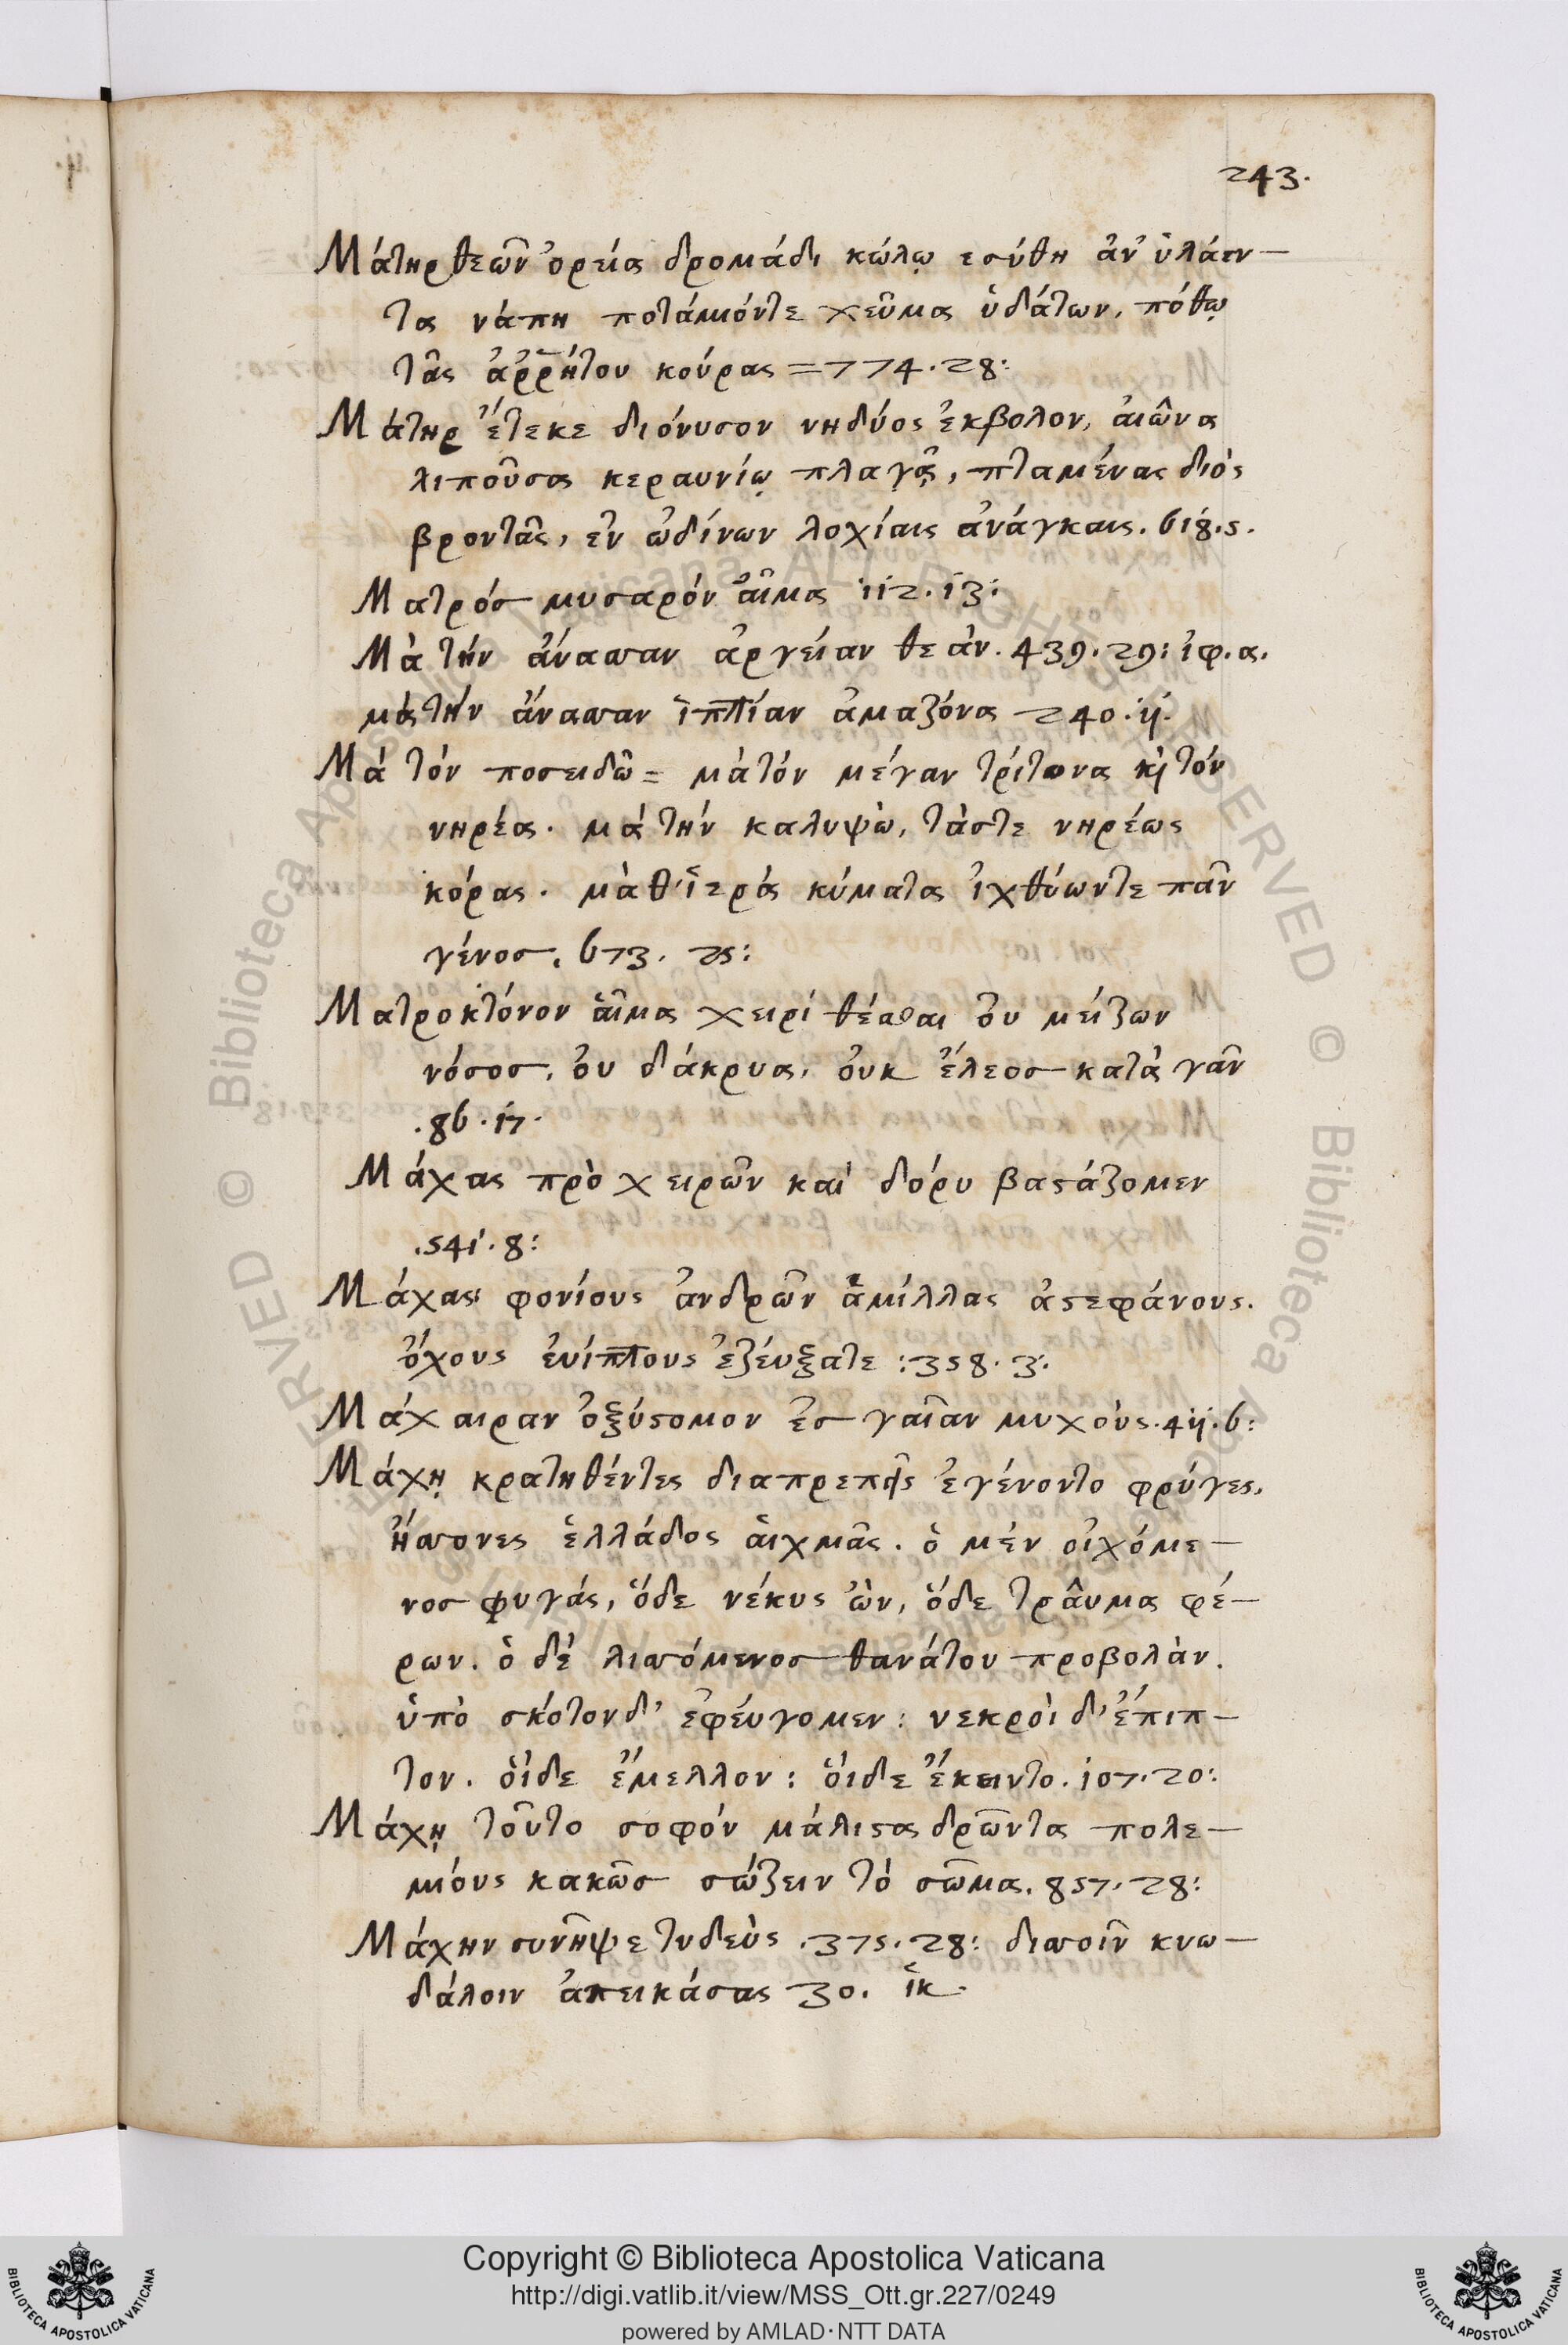 243.
Μάτηρ θεῶν ὀρεία δρομάδι κώλῳ εσύθη ἀν' ὑλάεν-
τα νάπη ποτάμιόντε χεῦμα ὑδάτων, πόθῳ
τᾶς ἀῤῥήτου κούρας = 774. 28:
Μάτηρ ἔτεκε διόνυσον νηδύος ἐκβολον, ἀιῶνα
λιποῦσα κεραυνίῳ πλαγᾷ, πταμένας διὸς
βροντᾶς, ἐν ὠδίνων λοχίαις ἀνάγκαις. 618. 5.
Ματρός μυσαρόν ἇιμα 112. 13:
Μὰ τήν ἄνασσαν ἀργείαν θεάν. 439. 29: ἰφ. α.
μά τήν ἄνασσαν ἱππίαν ἀμαζόνα 240. 11.
Μά τόν ποσειδῶ = μὰ τόν μέγαν τρίτωνα κὶ τόν
νηρέα. μά τήν καλυψὼ, τάστε νηρέως
κόρας. μὰ θ' ἱερά κύματα ἰχθύωντε πᾶν
γένος. 673. 25:
Ματροκτόνον ἇιμα χειρί θέσθαι ὀυ μείζων
νόσος, ὀυ δάκρυα, ὀυκ ἔλεος κατὰ γᾶν
.86. 17.
Μάχας πρὸ χειρῶν καί δόρυ βαςάζομεν
.541. 8:
Μάχας φονίους ἀνδρῶν ἁμίλλας ἀςεφάνους.
ὄχους ἐυίππους ἐζεύξατε : 358. 3.
Μάχαιραν ὀξύςομον ἐς γαῖαν μυχοὺς. 411. 6:
Μάχῃ κρατηθέντες διαπρεπεῖς ἐγένοντο φρύγες,
ἥσσονες ἑλλάδος ἀιχμᾶς. ὁ μέν οἰχόμε-
νος φυγάς, ὅδε νέκυς ὢν, ὅδε τρᾶυμα φέ-
ρων. ὁ δέ λισσόμενος θανάτου προβολὰν.
ὑπὸ σκότονδ' ἐφέυγομεν : νεκρὸι δ' ἔπιπ-
τον. ὅιδε ἔμελλον : ὅιδε ἔκειντο. 107. 20:
Μάχῃ τοῦτο σοφόν μάλιςα δρῶντα πολε-
μίους κακῶς σώζειν τὸ σῶμα. 857. 28:
Μάχην συνῆψε τυδεὺς .375. 28: δισσοῖν κνω-
δάλοιν ἀπεικάσας 30. ἱκ.
Copyright © Biblioteca Apostolica Vaticana
http://digi.vatlib.it/view/MSS_Ott.gr.227/0249
powered by AMLAD·NTT DATA